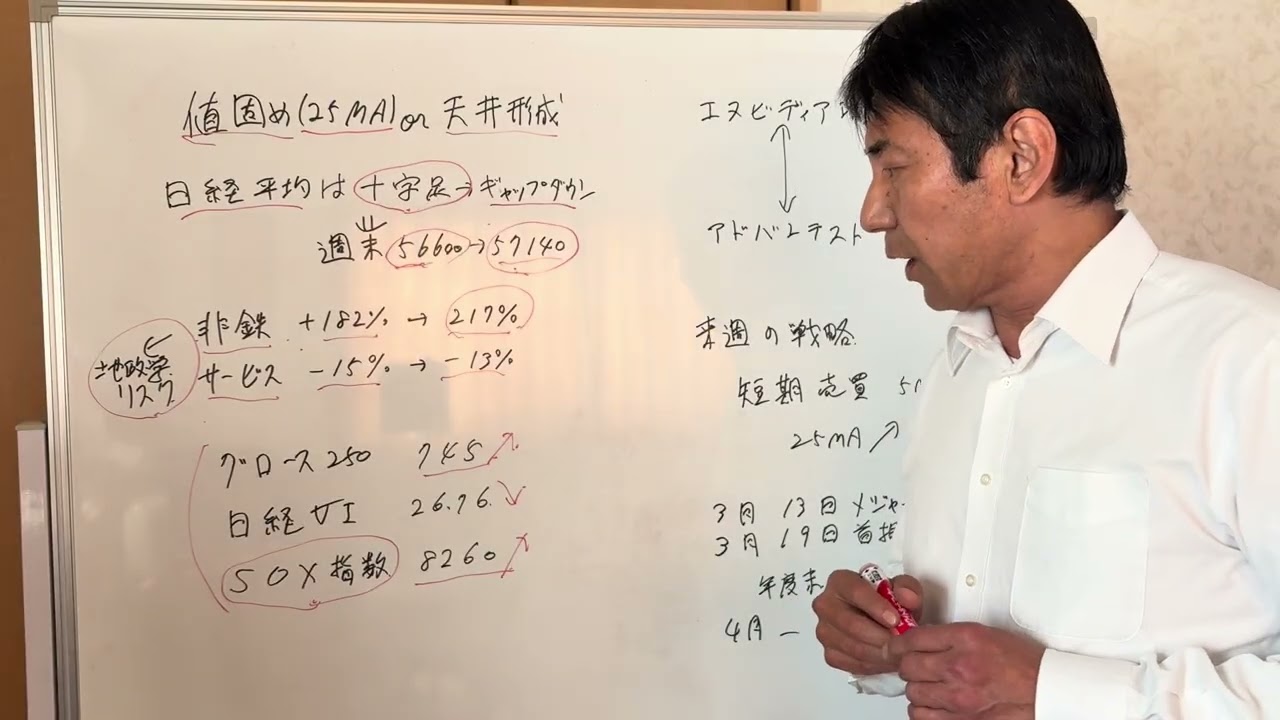 値固め(25MA)or 天井形成
日経平均は 十字足→ギャップダウン
週末 56600→57140
非鉄 +182% → 217%
サービス -15% → -13%
地政学
リスク
グロース250 745
日経VI 26.76
SOX指数 8260
エヌビディア
アドバンテスト
来週の戦略
短期売買
25MA
3月 13日 メジャー
3月 19日 首相
年度末
4月 ー